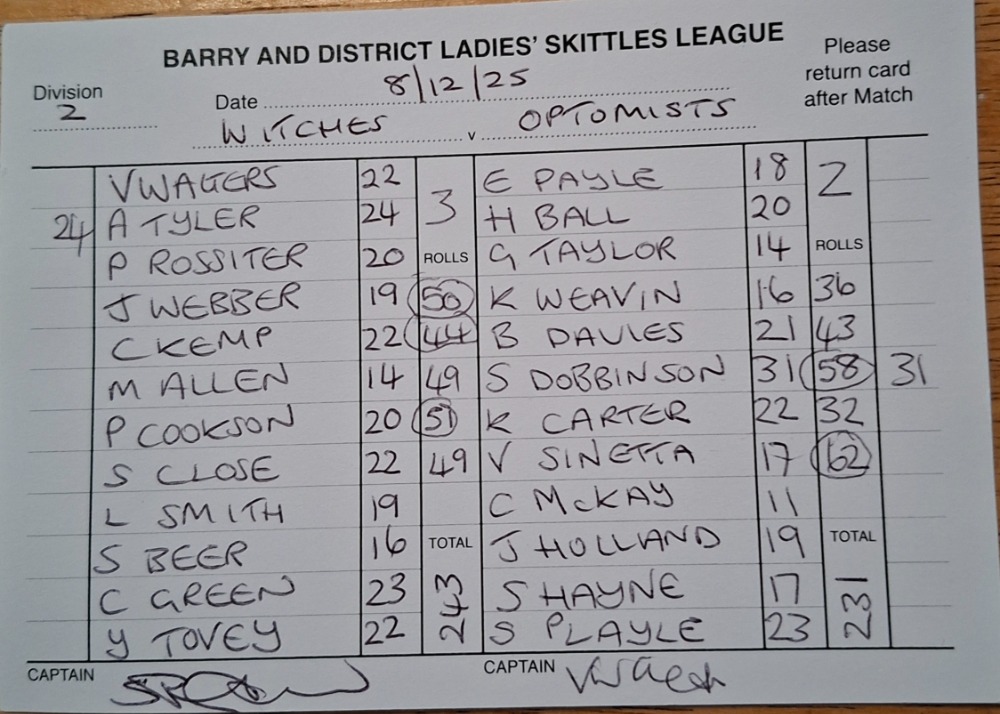 BARRY AND DISTRICT LADIES' SKITTLES LEAGUE
Please
return card
after Match
Division
2
Date 8/12/25
WITCHES v OPTOMISTS
V WAGERS 22 3 E PAYLE 18 2
24 A TYLER 24 H BALL 20
P ROSSITER 20 ROLLS G TAYLOR 14 ROLLS
J WEBBER 19 50 K WEAVIN 16 36
C KEMP 22 44 B DAVIES 21 43
M ALLEN 14 49 S DOBBINSON 31 58 31
P COOKSON 20 51 K CARTER 22 32
S CLOSE 22 49 V SINETTA 17 62
L SMITH 19 C McKAY 11
S BEER 16 TOTAL J HOLLAND 19 TOTAL
C GREEN 23 243 S HAYNE 17 231
Y TOVEY 22 S PLAYLE 23
CAPTAIN CAPTAIN